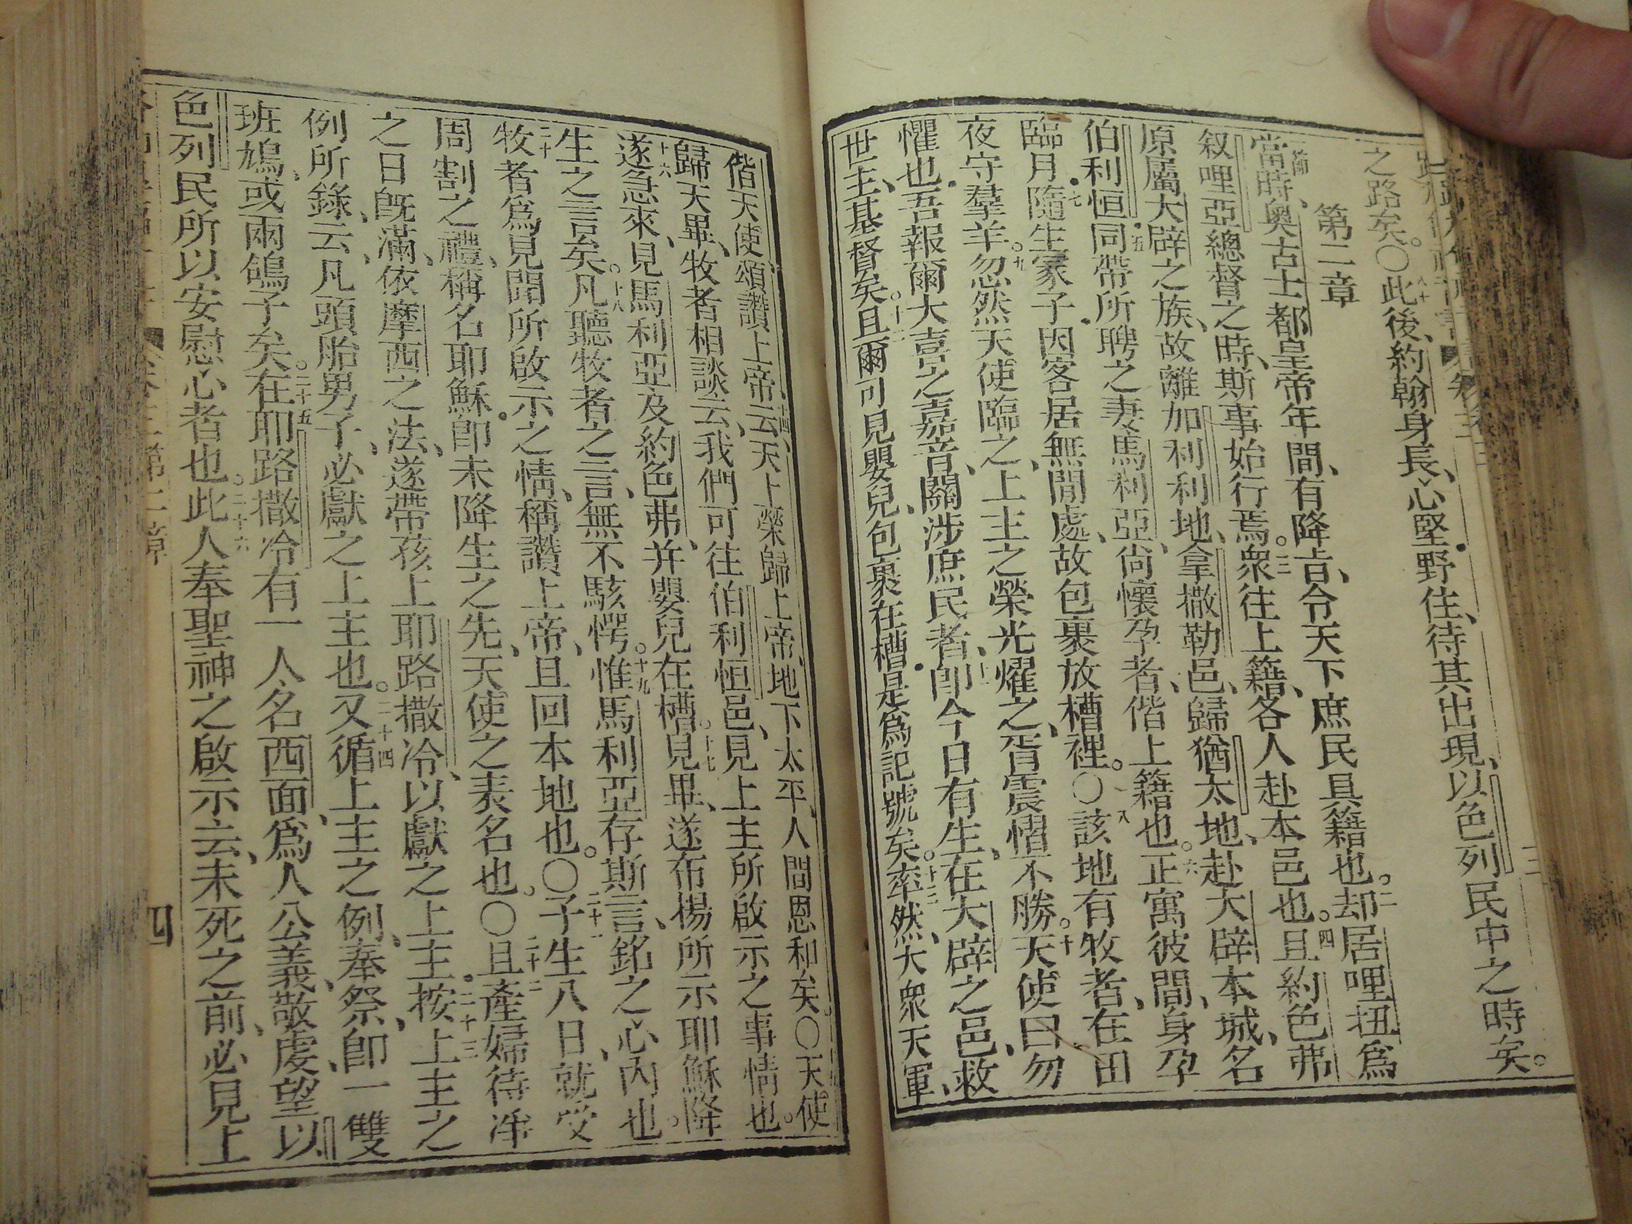 之路矣。○八十此後、約翰身長、心堅野住、待其出現、以色列民中之時矣。
第二章
當時、奧古士都皇帝年間、有降旨、令天下庶民具籍也。二却居哩扭爲
叙哩亞總督之時、斯事始行焉。三衆往上籍、各人赴本邑也。四且約色弗
原屬大辟之族、故離加利利地、拿撒勒邑、歸猶太地、赴大辟本城、名
伯利恒。五同帶所聘之妻馬利亞、尚懷孕者、偕上籍也。六正寓彼間、身孕
臨月。七隨生冢子、因客居無閒處、故包裹放槽裡。○八該地有牧者、在田
夜守羣羊。九忽然天使臨之、上主之榮光燿之、胥震慴不勝。十天使曰、勿
懼也、吾報爾大喜之嘉音、關涉庶民者、十一卽今日有生、在大辟之邑、救
世主、基督矣。十二且爾可見嬰兒、包裹在槽、是爲記號矣。十三率然、大衆天軍、
偕天使頌讚上帝、云、十四天上榮歸上帝、地下太平、人間恩和矣。○十五天使
歸天畢、牧者相談云、我們可往伯利恒邑、見上主所啟示之事情也。
十六遂急來、見馬利亞及約色弗、并嬰兒在槽。十七見畢、遂布揚所示耶穌降
生之言矣。十八凡聽牧者之言、無不駭愕。十九惟馬利亞存斯言、銘之心內也。
二十牧者爲見聞所啟示之情、稱讚上帝、且回本地也。○二十一子生八日、就受
周割之禮、稱名耶穌。卽未降生之先、天使之表名也。○二十二且產婦待淨
之日旣滿、依摩西之法、遂帶孩上耶路撒冷、以獻之上主。二十三按上主之
例所錄、云、凡頭胎男子、必獻之上主也。二十四又循上主之例、奉祭、卽一雙
班鳩、或兩鴿子矣。二十五在耶路撒冷有一人、名西面、爲人公義敬虔、望以
色列民所以安慰心者也。二十六此人奉聖神之啟示云、未死之前、必見上
四